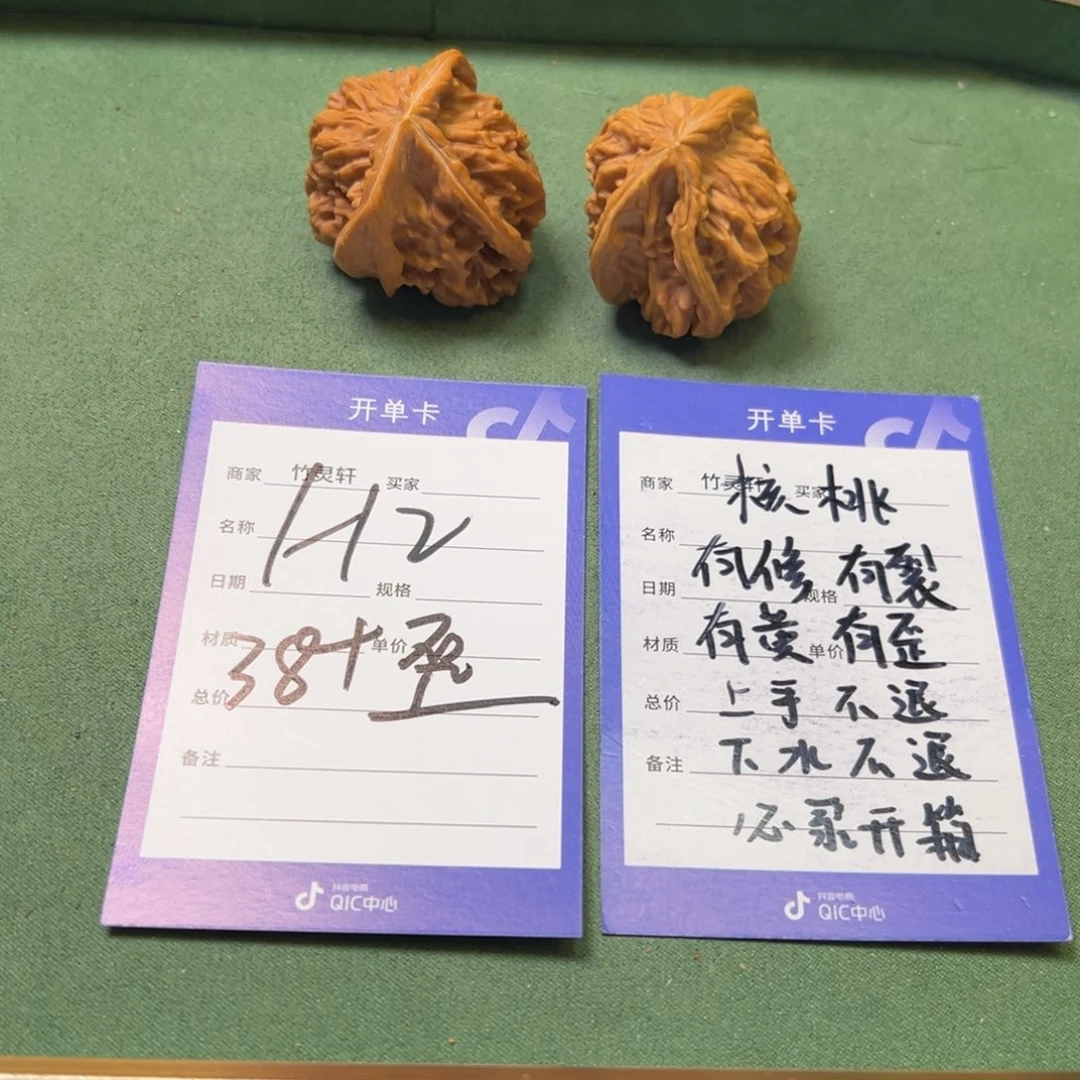 开单卡
商家 竹灵轩 买家
名称
H2
日期 规格
材质 单价
38+
总价
备注
抖音电商
QIC中心
开单卡
商家 竹灵轩 买家
核桃
名称
有修 有裂
日期 规格
有黄 有歪
材质 单价
总价 上手不退
备注 下水不退
必录开箱
抖音电商
QIC中心